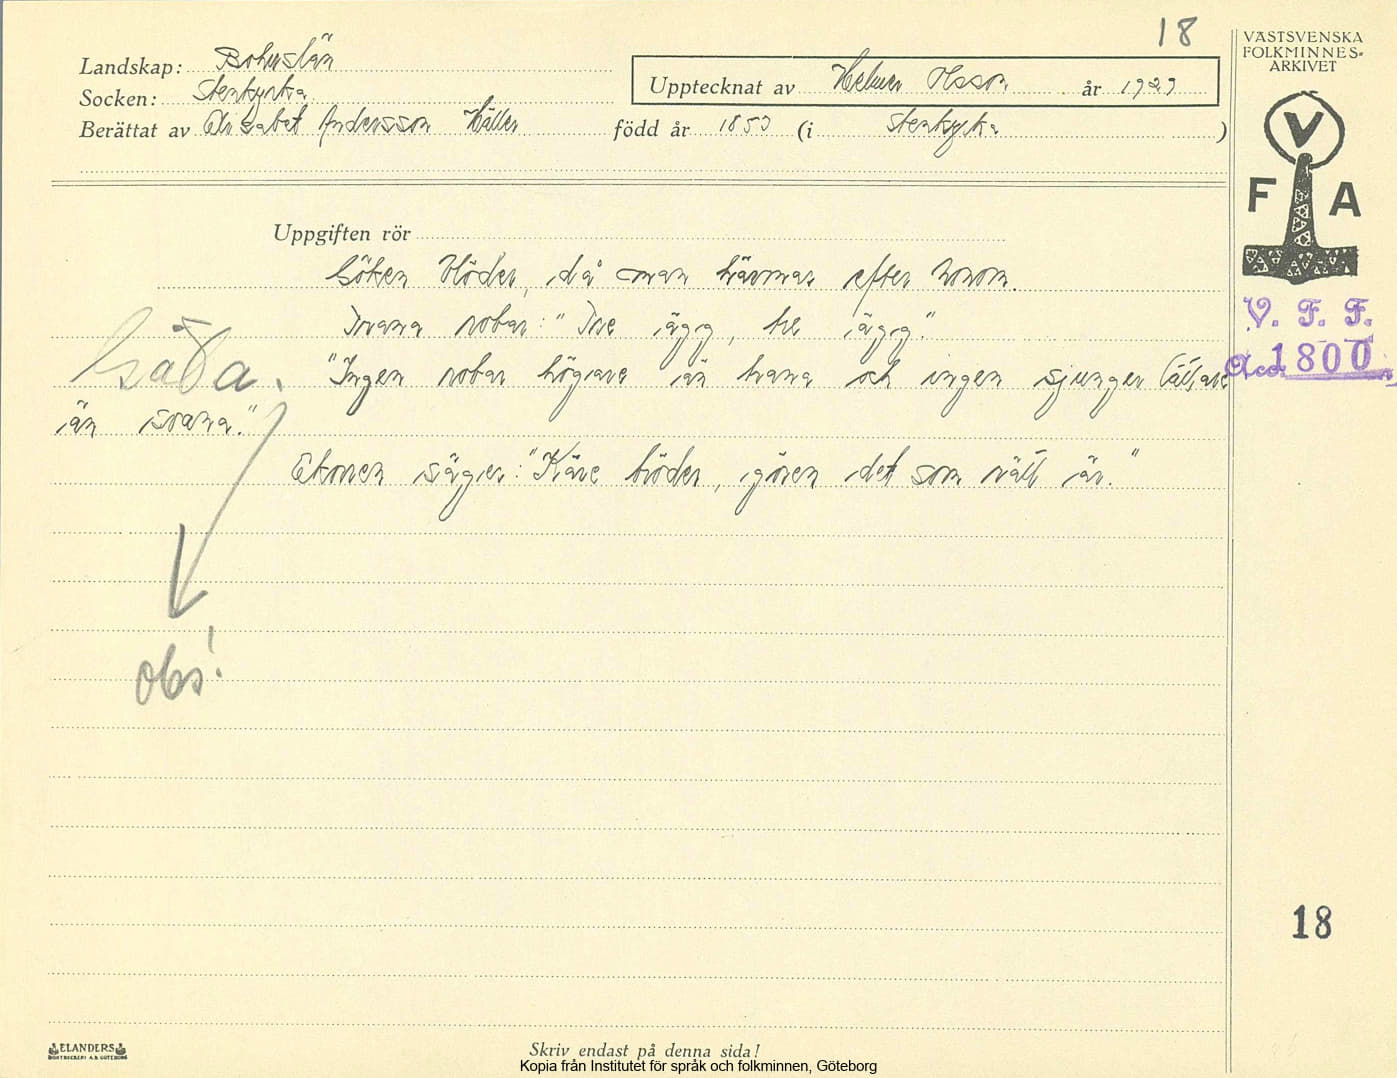 18
VÄSTSVENSKA
FOLKMINNES-
ARKIVET
Landskap: Bohuslän
Socken: Stenkyrka
Upptecknat av Helmer Olsson år 1929
Berättat av Elisabet Andersson Häller född år 1853 (i Stenkyrka )
V
F A
Uppgiften rör
Göken blöder, då man härmar efter honom.
Trana robar: "Tre ägg, tre ägg."
V. F. F.
Acc. 1800
"Ingen robar högare än trana och ingen sjunger lättare
än svana."
Ekoren säger: "Käre bröder, gören det som rätt är."
obs!
18
ELANDERS
BOKTRYCKERI A.B. GÖTEBORG
Skriv endast på denna sida!
Kopia från Institutet för språk och folkminnen, Göteborg